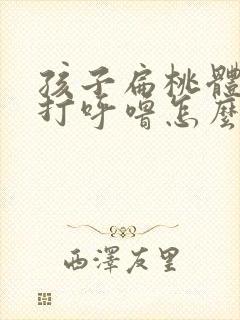 孩子扁桃體
打呼嚕怎麼
西澤友里